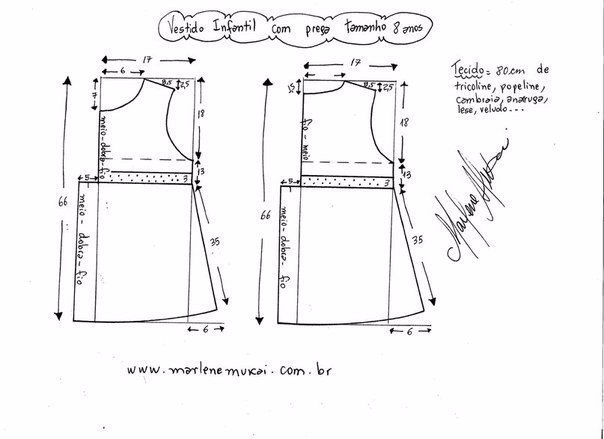 Vestido Infantil com prega tamanho 8 anos
17
6
8,5
2,5
7
18
13
meio-dobra-fio
5
3
66
meio - dobra - fio
35
6
17
8,5
2,5
18
13
fio - meio
5
3
66
meio - dobra - fio
35
6
Tecido = 80cm de
tricoline, popeline,
cambraia, anarruga,
lese, veludo...
Marlene Mukai
www.marlenemukai.com.br